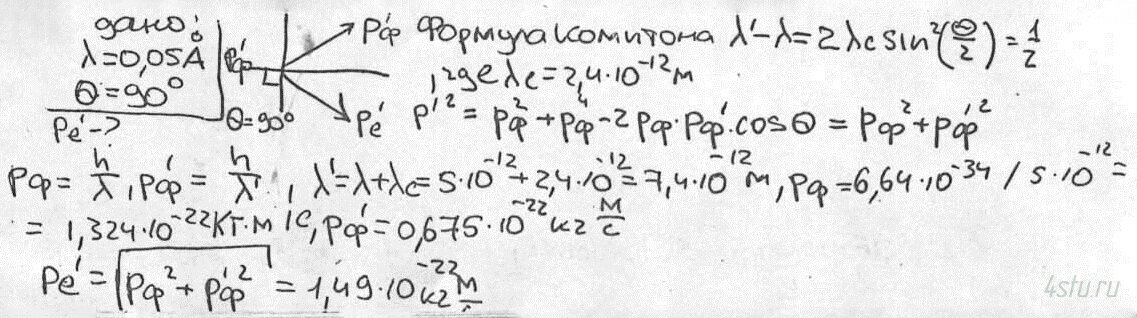 дано:
λ=0,05A
Θ=90°
Pe'-?
Pф
Θ=90°
Pф'
Pe'
Формула комптона λ'-λ=2λc sin²(Θ/2)=1/2
, где λc=2,4·10⁻¹² м
p'²= pф²+pф'-2pф·pф'·cosΘ = pф²+pф'²
pф= h/λ, pф'= h/λ', λ'=λ+λc=5·10⁻¹²+2,4·10⁻¹²=7,4·10⁻¹² м, pф=6,64·10⁻³⁴ / 5·10⁻¹²=
= 1,324·10⁻²² кг·м/с, pф'=0,675·10⁻²² кг м/с
Pe'=√pф²+pф'² = 1,49·10⁻²² кг м/с
4stu.ru